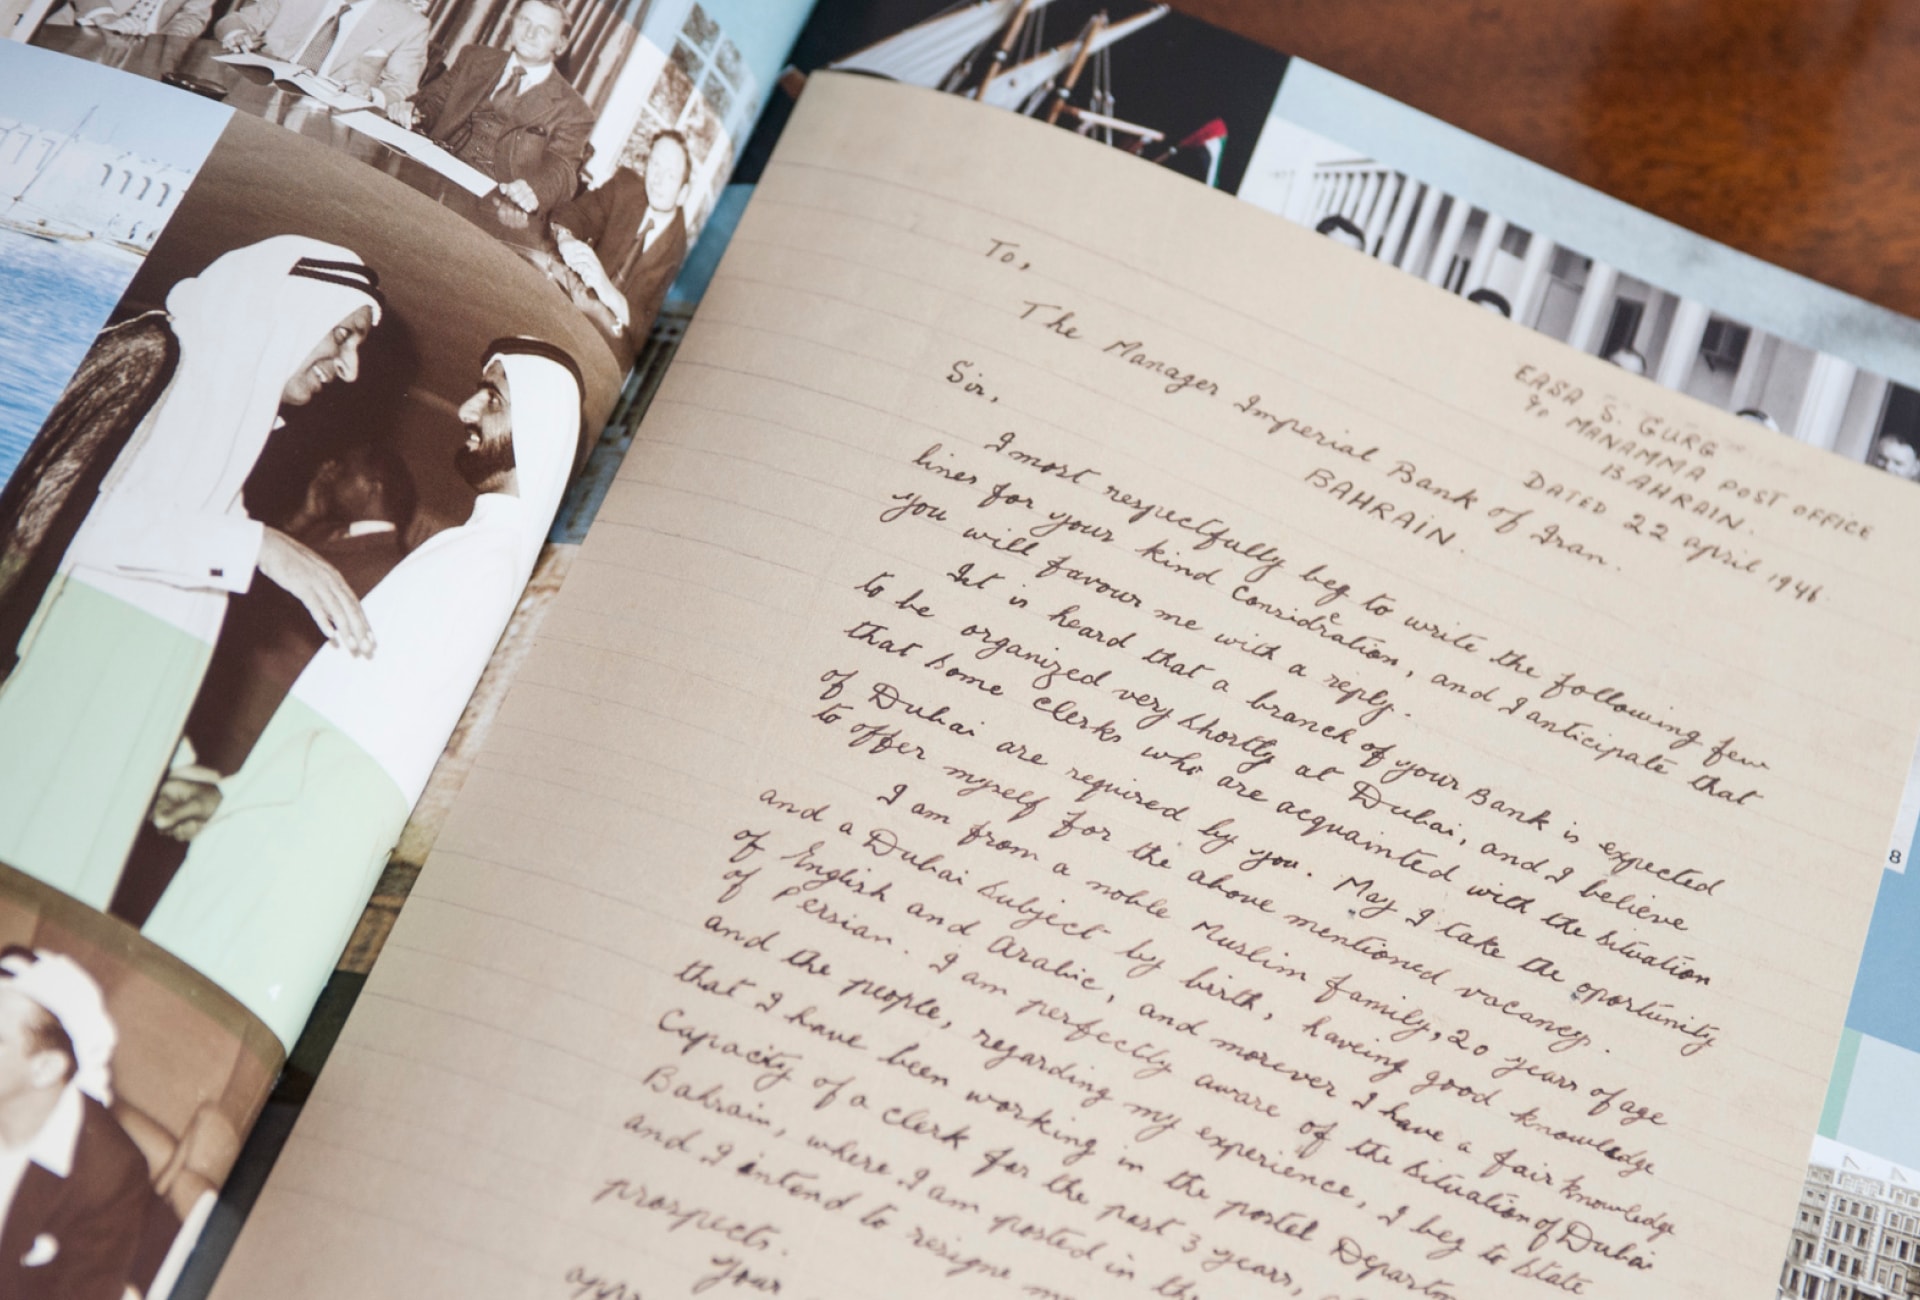 EASA S. GURG
c/o MANAMMA POST OFFICE
BAHRAIN.
DATED 22 april 1946.
To,
The Manager Imperial Bank of Iran.
BAHRAIN.
Sir,
I most respectfully beg to write the following few
lines for your kind Considration, and I anticipate that
you will favour me with a reply.
It is heard that a branch of your Bank is expected
to be organized very shortly at Dubai, and I believe
that some clerks who are acquainted with the situation
of Dubai are required by you. May I take the oportunity
to offer myself for the above mentioned vacancy.
I am from a noble Muslim family, 20 years of age
and a Dubai subject by birth, haveing good knowledge
of English and Arabic, and morever I have a fair knowledge
of Persian. I am perfectly aware of the situation of Dubai
and the people, regarding my experience, I beg to state
that I have been working in the postal
Capacity of a clerk for the past 3 years,
Bahrain, where I am posted in
and I intend to resigne
prospects.
Your
8